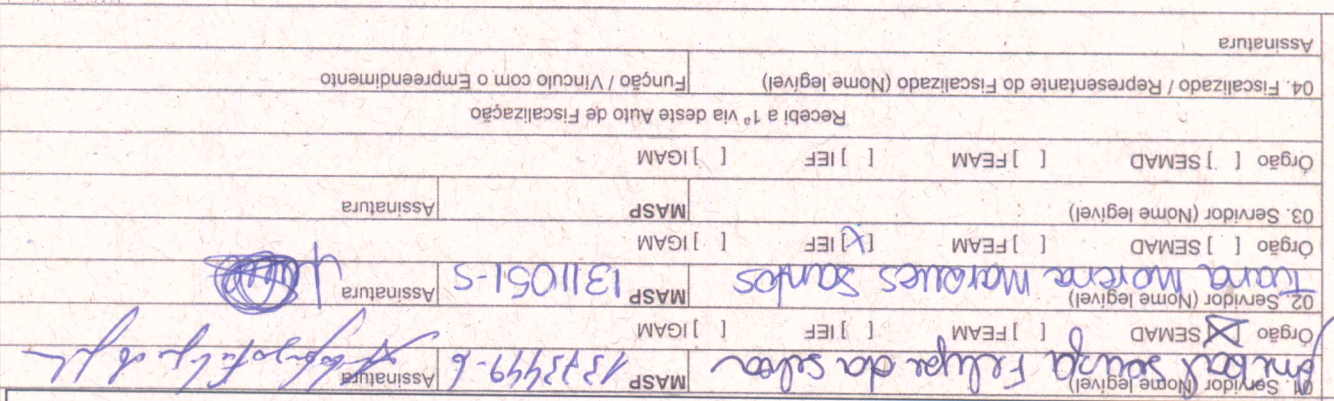 01. Servidor (Nome legível) Anibal Souza Felipe da Silva MASP 1373449-6 Assinatura
Órgão [X] SEMAD [ ] FEAM [ ] IEF [ ] IGAM
02. Servidor (Nome legível) Iuana Morena Marques Santos MASP 1311051-5 Assinatura
Órgão [ ] SEMAD [ ] FEAM [X] IEF [ ] IGAM
03. Servidor (Nome legível) MASP Assinatura
Órgão [ ] SEMAD [ ] FEAM [ ] IEF [ ] IGAM
Recebi a 1ª via deste Auto de Fiscalização
04. Fiscalizado / Representante do Fiscalizado (Nome legível) Função / Vínculo com o Empreendimento
Assinatura